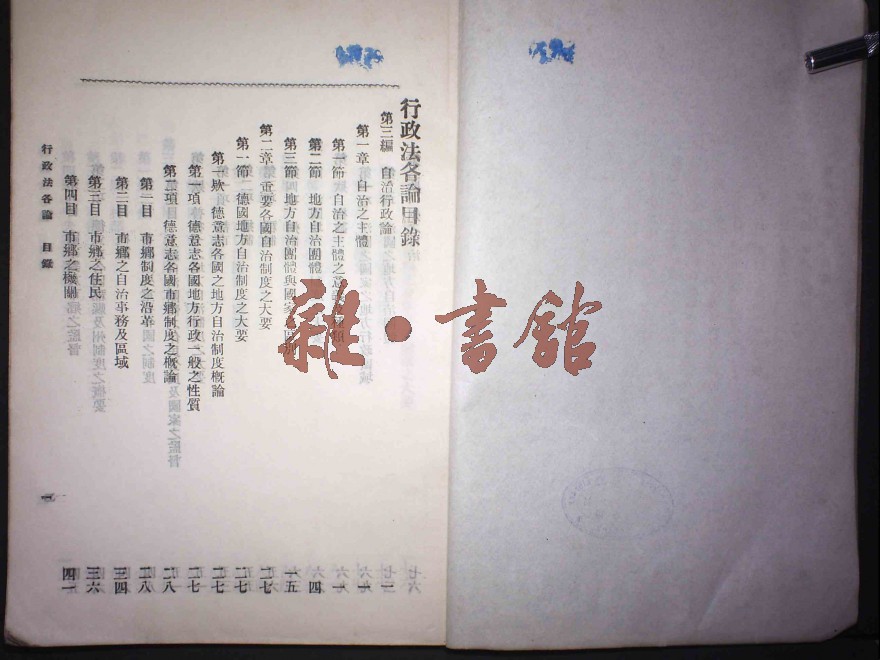 行政法各論目錄
第三編 自治行政論
第一章 自治之主體
第一節 自治之主體之意義 一
第二節 地方自治團體 四
第三節 地方自治團體與國家之區別 一五
第二章 重要各國自治制度之大要 二七
第一節 德國地方自治制度之大要 二七
第一欵 德意志各國之地方自治制度概論 二七
第一項 德意志各國地方行政一般之性質 二七
第二項 德意志各國市鄉制度之概論 二八
第一目 市鄉制度之沿革 二八
第二目 市鄉之自治事務及區域 三四
第三目 市鄉之住民 三六
第四目 市鄉之機關 四一
行政法各論 目錄 一
雜·書館